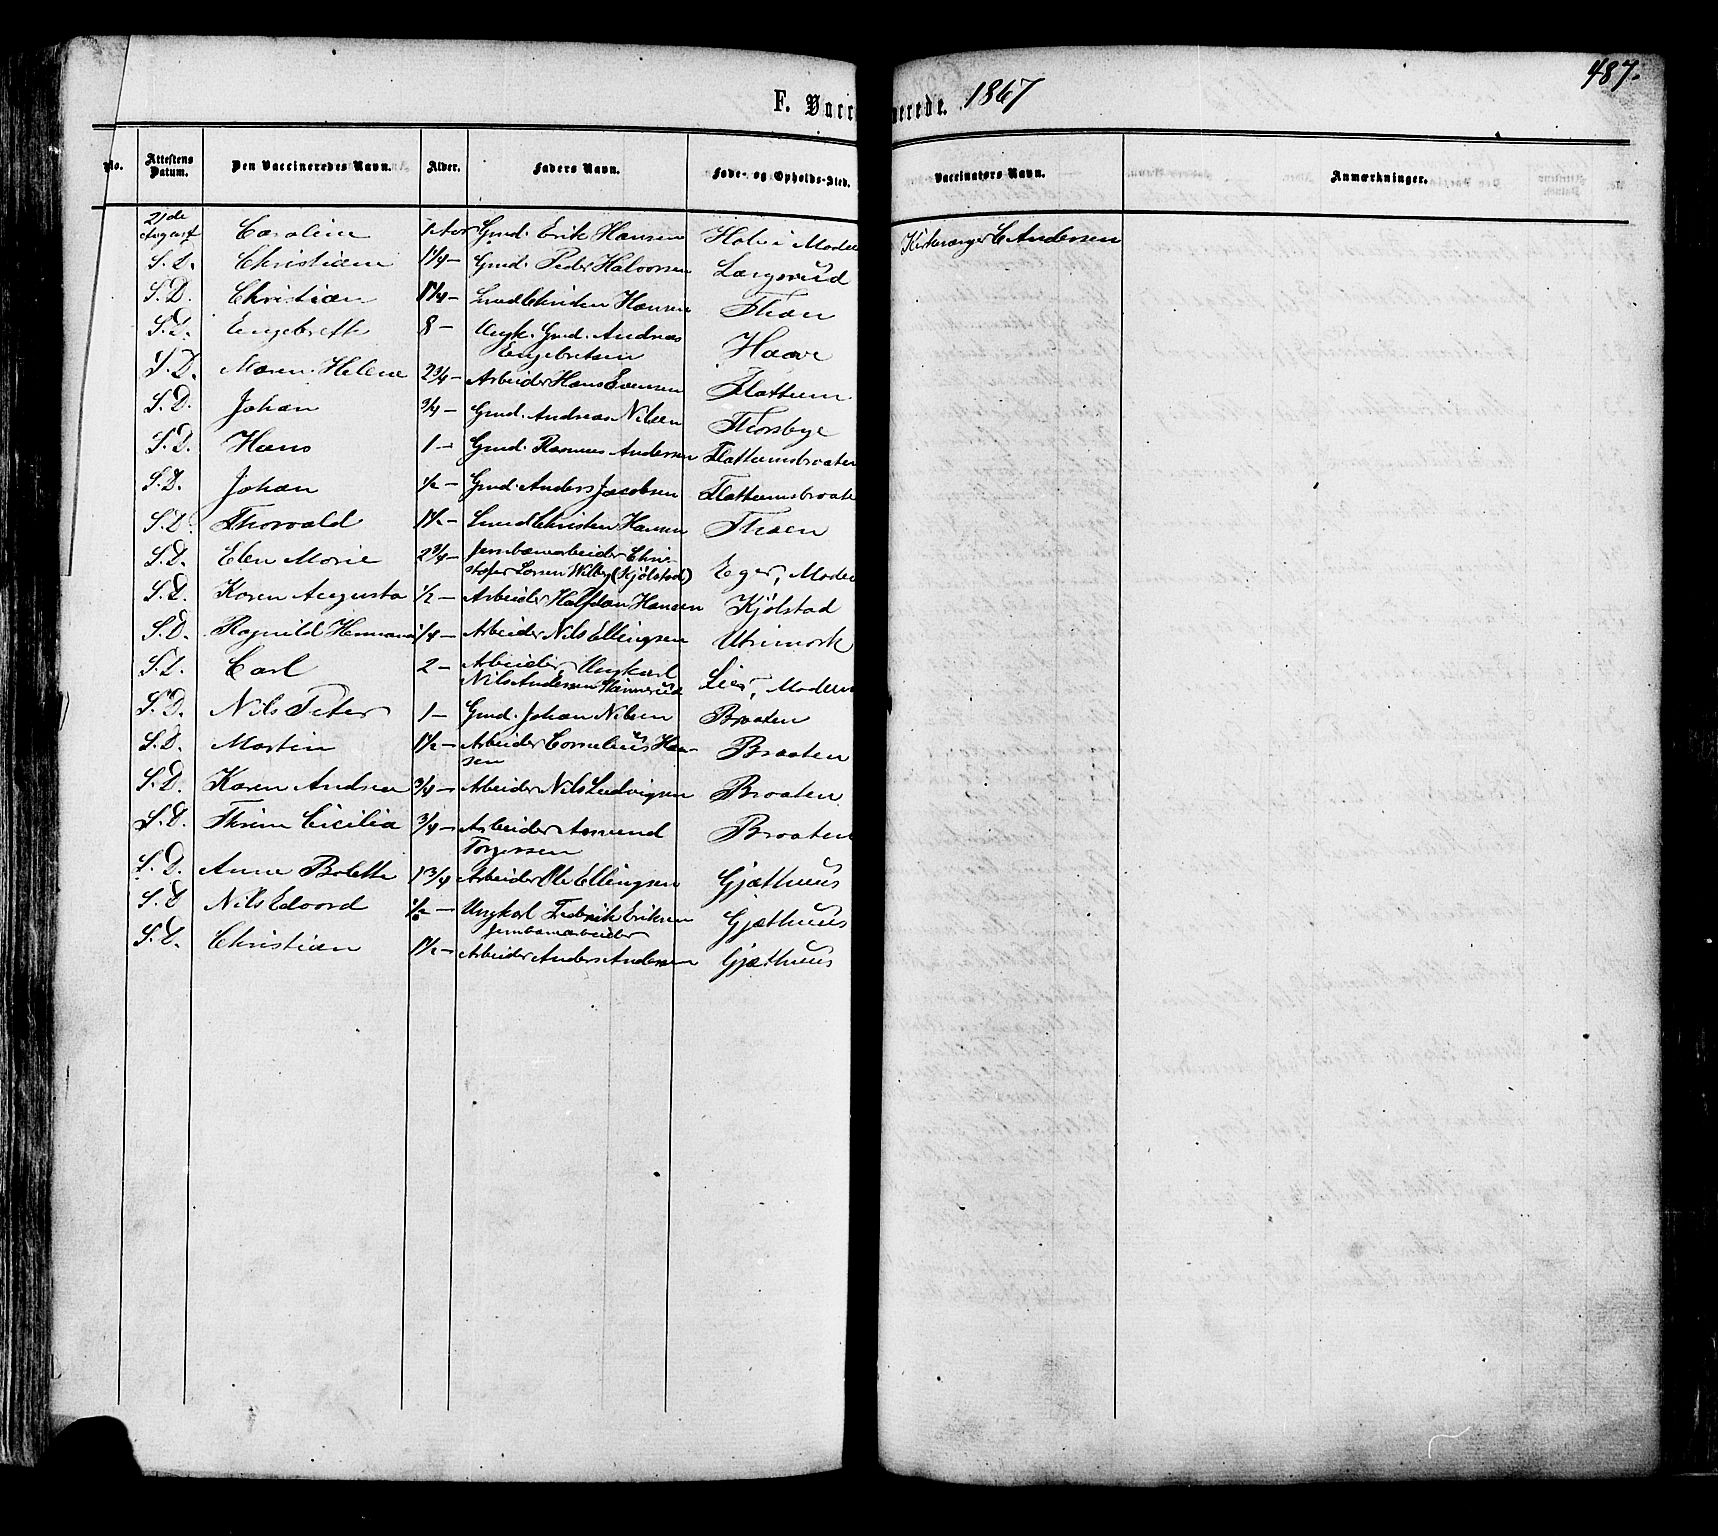 487.
F. Vaccinerede. 1867
No. Attestens Datum. Den Vaccineredes Navn. Alder. Faders Navn. Føde- og Opholds-Sted. Vaccinators Navn. Anmærkninger.
2den August Caroline 1 Aar Gmd. Erik Hansen Hole i Modum Kirkesanger C Andersen
S. D. Christian 1 1/4 — Gmd. Peder Halvorsen Langerud
S. D. Christian 1 1/4 — Hansen Thoen
S. D. Engebreth 8 — Ungk. Gmd. Andreas
Engebretsen Haave
S. D. Maren Helene 2 3/4 — Arbeider Hans Evensen Flattum
S. D. Johan 3/4 — Gmd. Andreas Nilsen Thorsbye
S. D. Hans 1 — Gmd. Rasmus Andersen Flattumsbraaten
S. D. Johan 1/2 — Gmd. Anders Jacobsen Flattumsbraate
S. D. Thorvald 1 1/2 — Hansen Thoen
S. D. Elen Marie 2 3/4 — Jernbanarbeider Chri-
stofer Larsen Wilberg (Kjølstad) Eger, Modum
S. D. Karen Augusta 1/2 — Arbeider Halfdan Hansen Kjølstad
S. D. Ragnild Hermana 1/4 — Arbeider Nils Ellingsen Utrimork
S. D. Carl 2 — Arbeider Ungkarl
Nils Andersen Lier, Modum
S. D. Nils Peter 1 — Gmd. Johan Nilsen Braaten
S. D. Martin 1 1/2 — Arbeider Cornelius Han-
sen Braaten
S. D. Karen Andrea 3/4 — Arbeider Nils Ludvigsen Braaten
S. D. Thrine Cicilia 3/4 — Arbeider Asmund
Torgersen Braaten
S. D. Anne Bolette 1 3/4 Arbeider Ole Ellingsen Gjæthuus
S. D. Nils Edvard 1/2 — Ungkarl Fedrik Eriksen
Jernbanarbeider Gjæthuus
S. D. Christian 1 1/2 — Arbeider Anders Andersen Gjæthuus